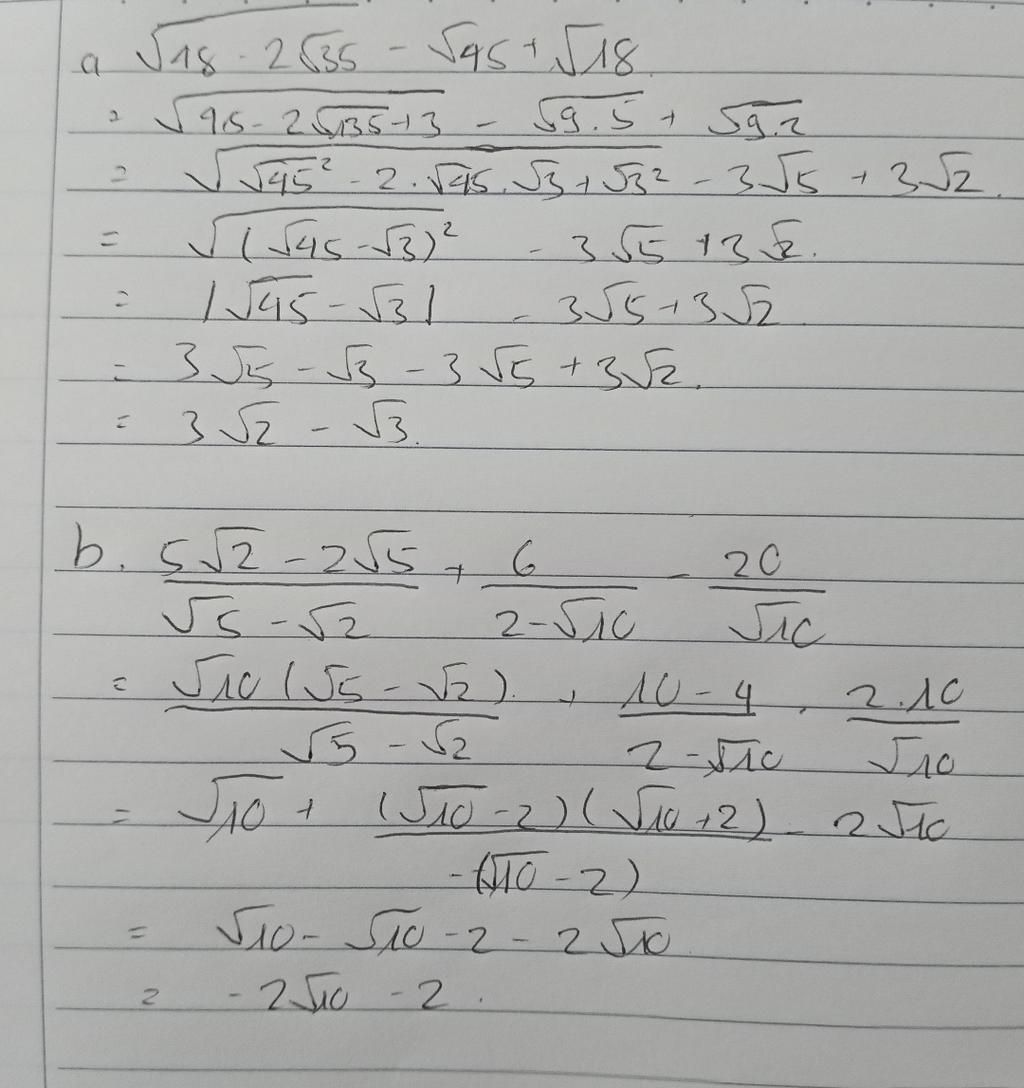 a √(18 - 2√35) - √45 + √18
= √(45 - 2√135 + 3) - √9.5 + √9.2
= √(√45² - 2.√45.√3 + √3²) - 3√5 + 3√2.
= √((√45 - √3)²) - 3√5 + 3√2.
= |√45 - √3| - 3√5 + 3√2
= 3√5 - √3 - 3√5 + 3√2.
= 3√2 - √3.
b. (5√2 - 2√5)/(√5 - √2) + 6/(2 - √10) - 20/√10
= √10(√5 - √2)/(√5 - √2) + (10 - 4)/(2 - √10) - 2.10/√10
= √10 + (√10 - 2)(√10 + 2)/-(√10 - 2) - 2√10
= √10 - √10 - 2 - 2√10
= -2√10 - 2.